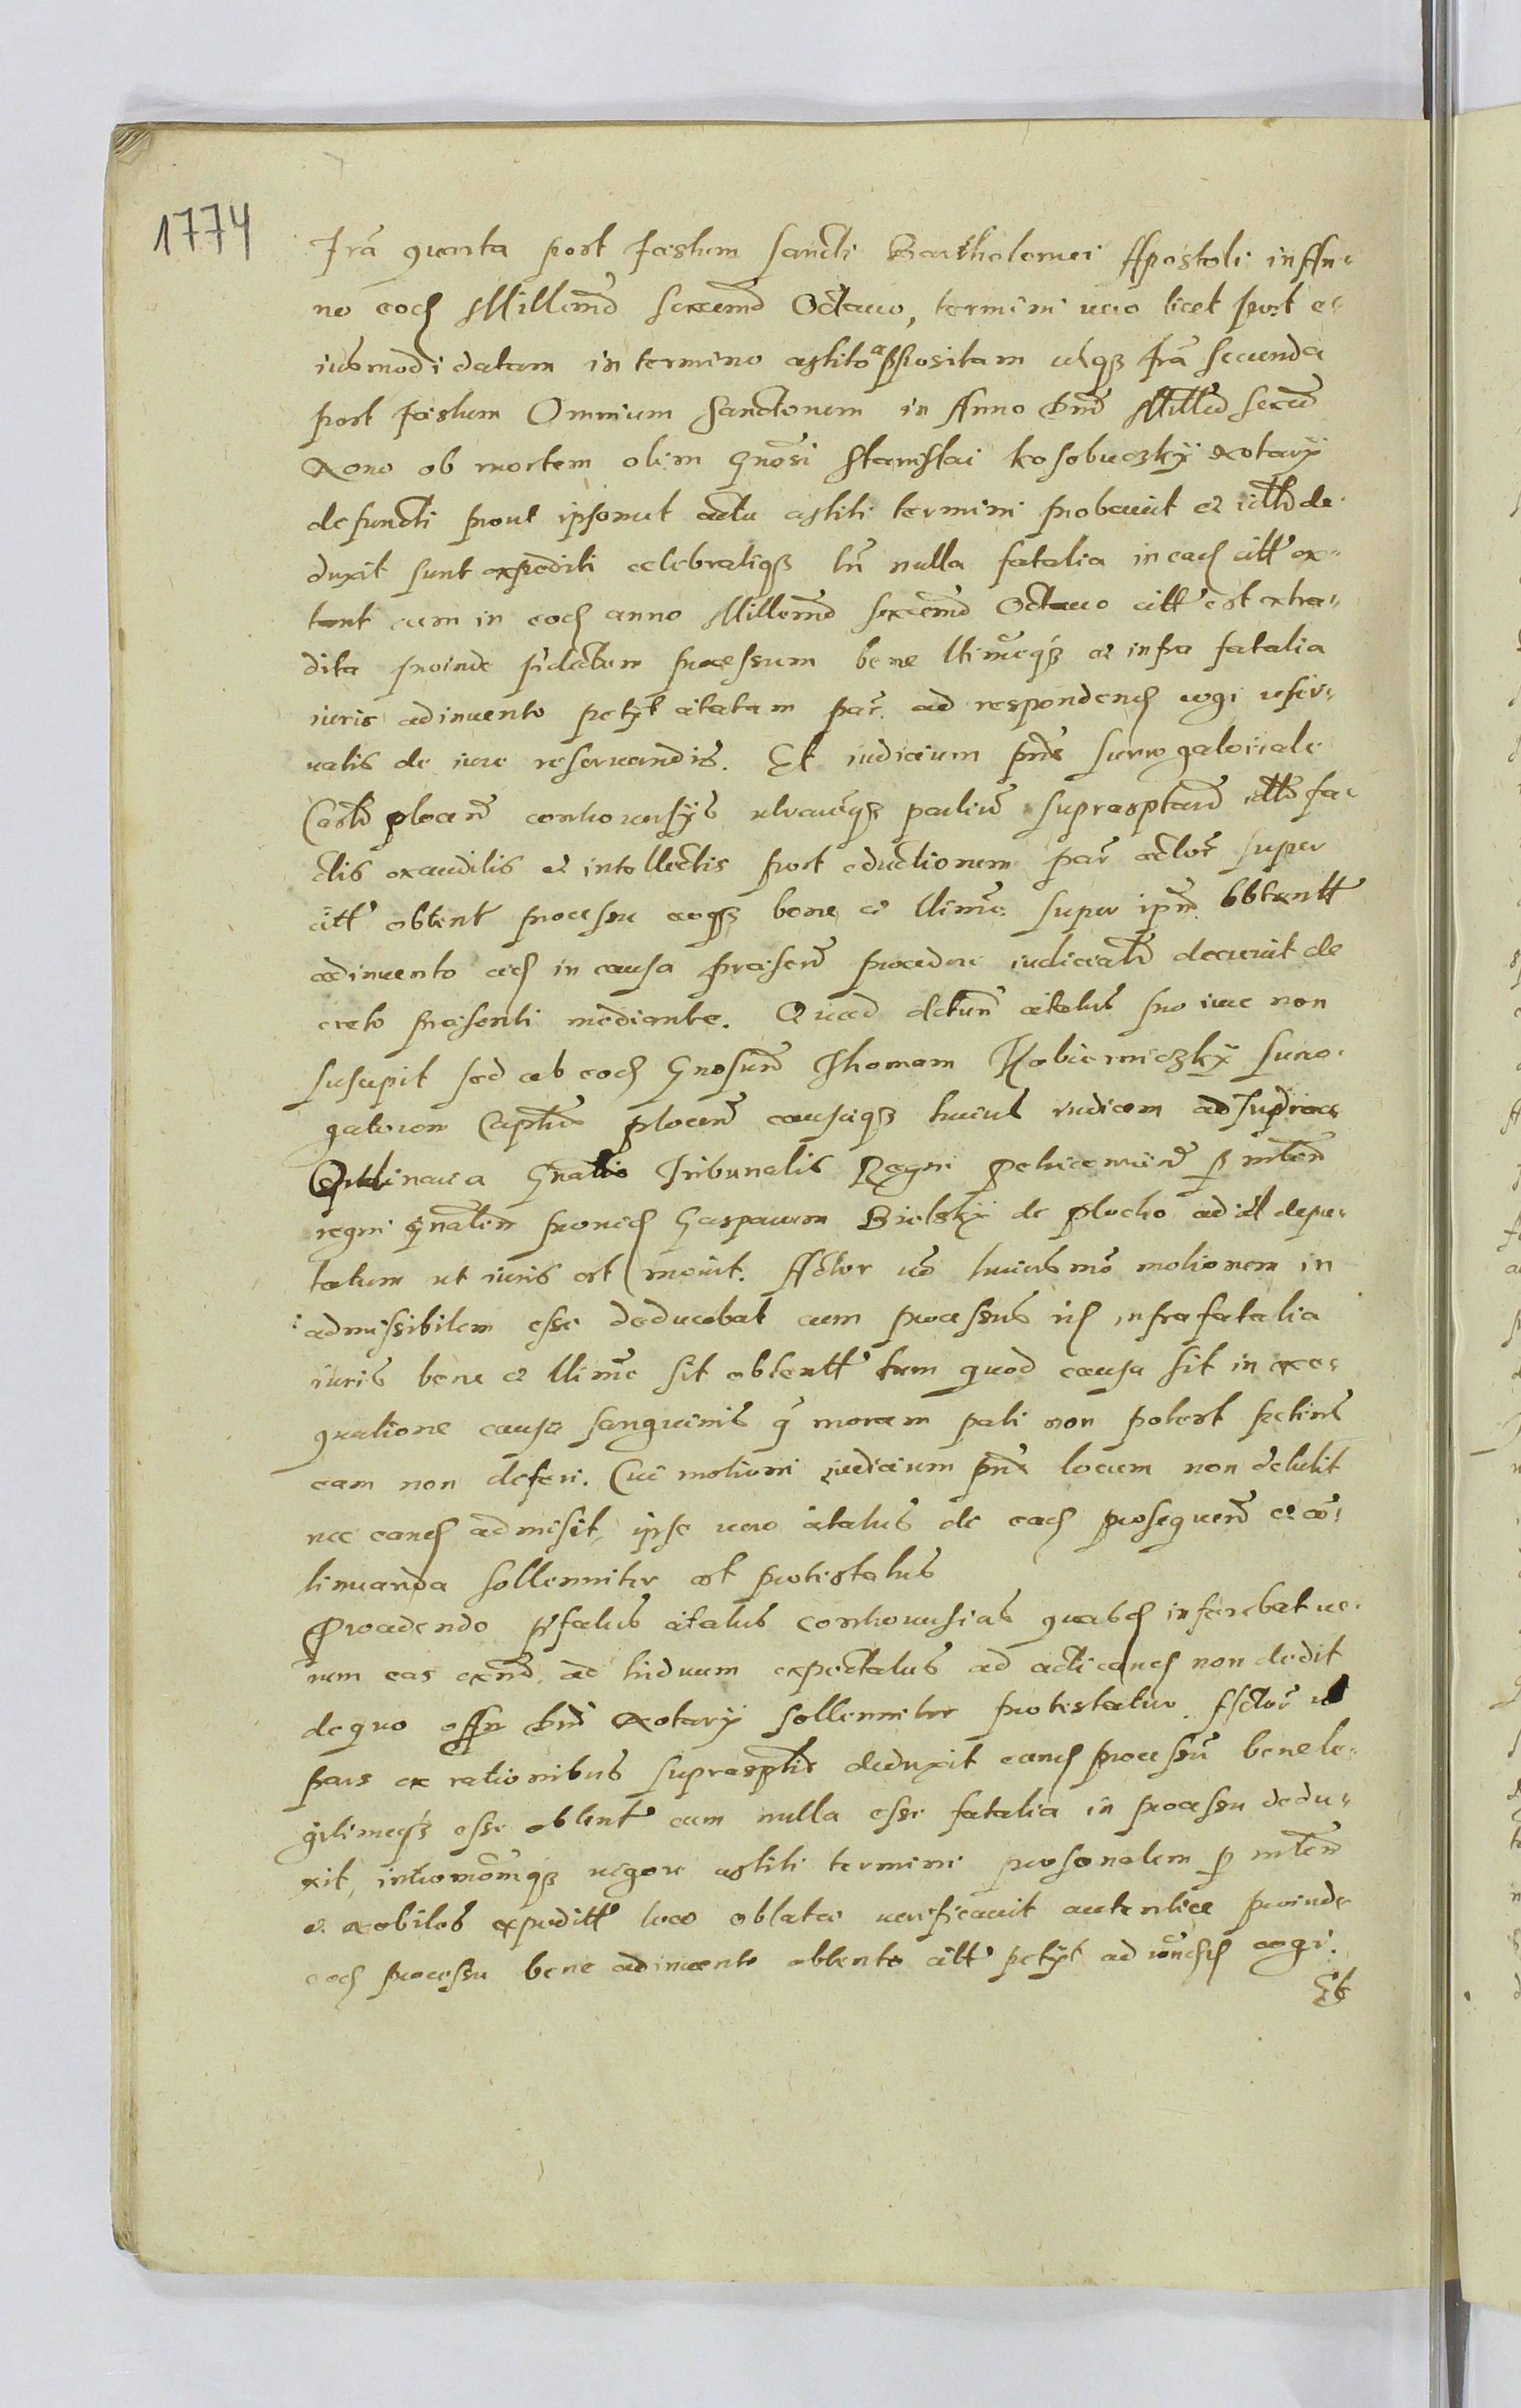 1774
Fra quarta post Festum Sancti Bartholomei Apostoli in An-
no eod Millemo Sexcemo Octauo, termini uero licet post e-
iusmodi datam in termino astito appositam usq Fra Secunda
post Festum Omnium Sanctorum in Anno Dni Millmo Sexcmo
Nono ob mortem olim Gnosi Stanislai Kosobuczky Notary
defuncti prout ipsomet actu astiti termini probauit et ittd de
duxit sunt expediti celebratiq tn nulla fatalia in ead citt ex-
tant cum in eod anno Millemo Sexcemo Octauo citt est extra-
dita proinde pdictum processum bene ltimeq et infra fatalia
iuris adinuento petyt citatam par. ad respondend cogi
uatis de iure reseruandis. Et iudicium pns Surrogatoriale
Castr plocen controuersys utrarumq partium suprasptar ittd fa-
ctis exauditis et intellectis post eductionem par actor super
citt obtent processu eoq bene et ltime super ipm obtentt
adinuento eid in causa praesen procedere iudicialr decreuit de
creto praesenti mediante. Quod decretum citatus pro iure non
suscepit sed ab eod Gnosum Thomam Kobierniczky Surro-
gatorem Capitlem plocen causaeq huius iudicem ad Iudicia
Ordinaria Gnalis Tribunalis Regni petricouien p mten
regni gnalem prouid Gasparum Bielsky de plocko ad id depu-
tatum ut iuris est mouit. Actor uo huiusmo motionem in
admissibilem esse deducebat cum processus is infra fatalia
iuris bene et ltime sit obtentt tum quod causa sit in exe-
quutione causa sanguinis q moram pati non potest petins
eam non deferi. Cui motioni iudicium pns locum non detulit
nec eand admisit, ipse uero citatus de ead prosequen et con-
tinuanda sollenniter est protestatus
Procedendo pfatus citatus controuersias quasd inferebat ue-
rum eas ad triduum expectatus ad acticand non dedit
de quo offm Dni Notary sollenniter protestatur. Actor u
pars ex rationibus suprasptis deduxit eand processum bene le-
gitimeq esse obtent cum nulla esse fatalia in processu dedu-
xit, intromomq uigore astiti termini personalem p mten
et nobiles expeditt loco oblatae uerificauit autentice proinde
eod processu bene adinuento obtento citt petyt ad rondd cogi.
Et